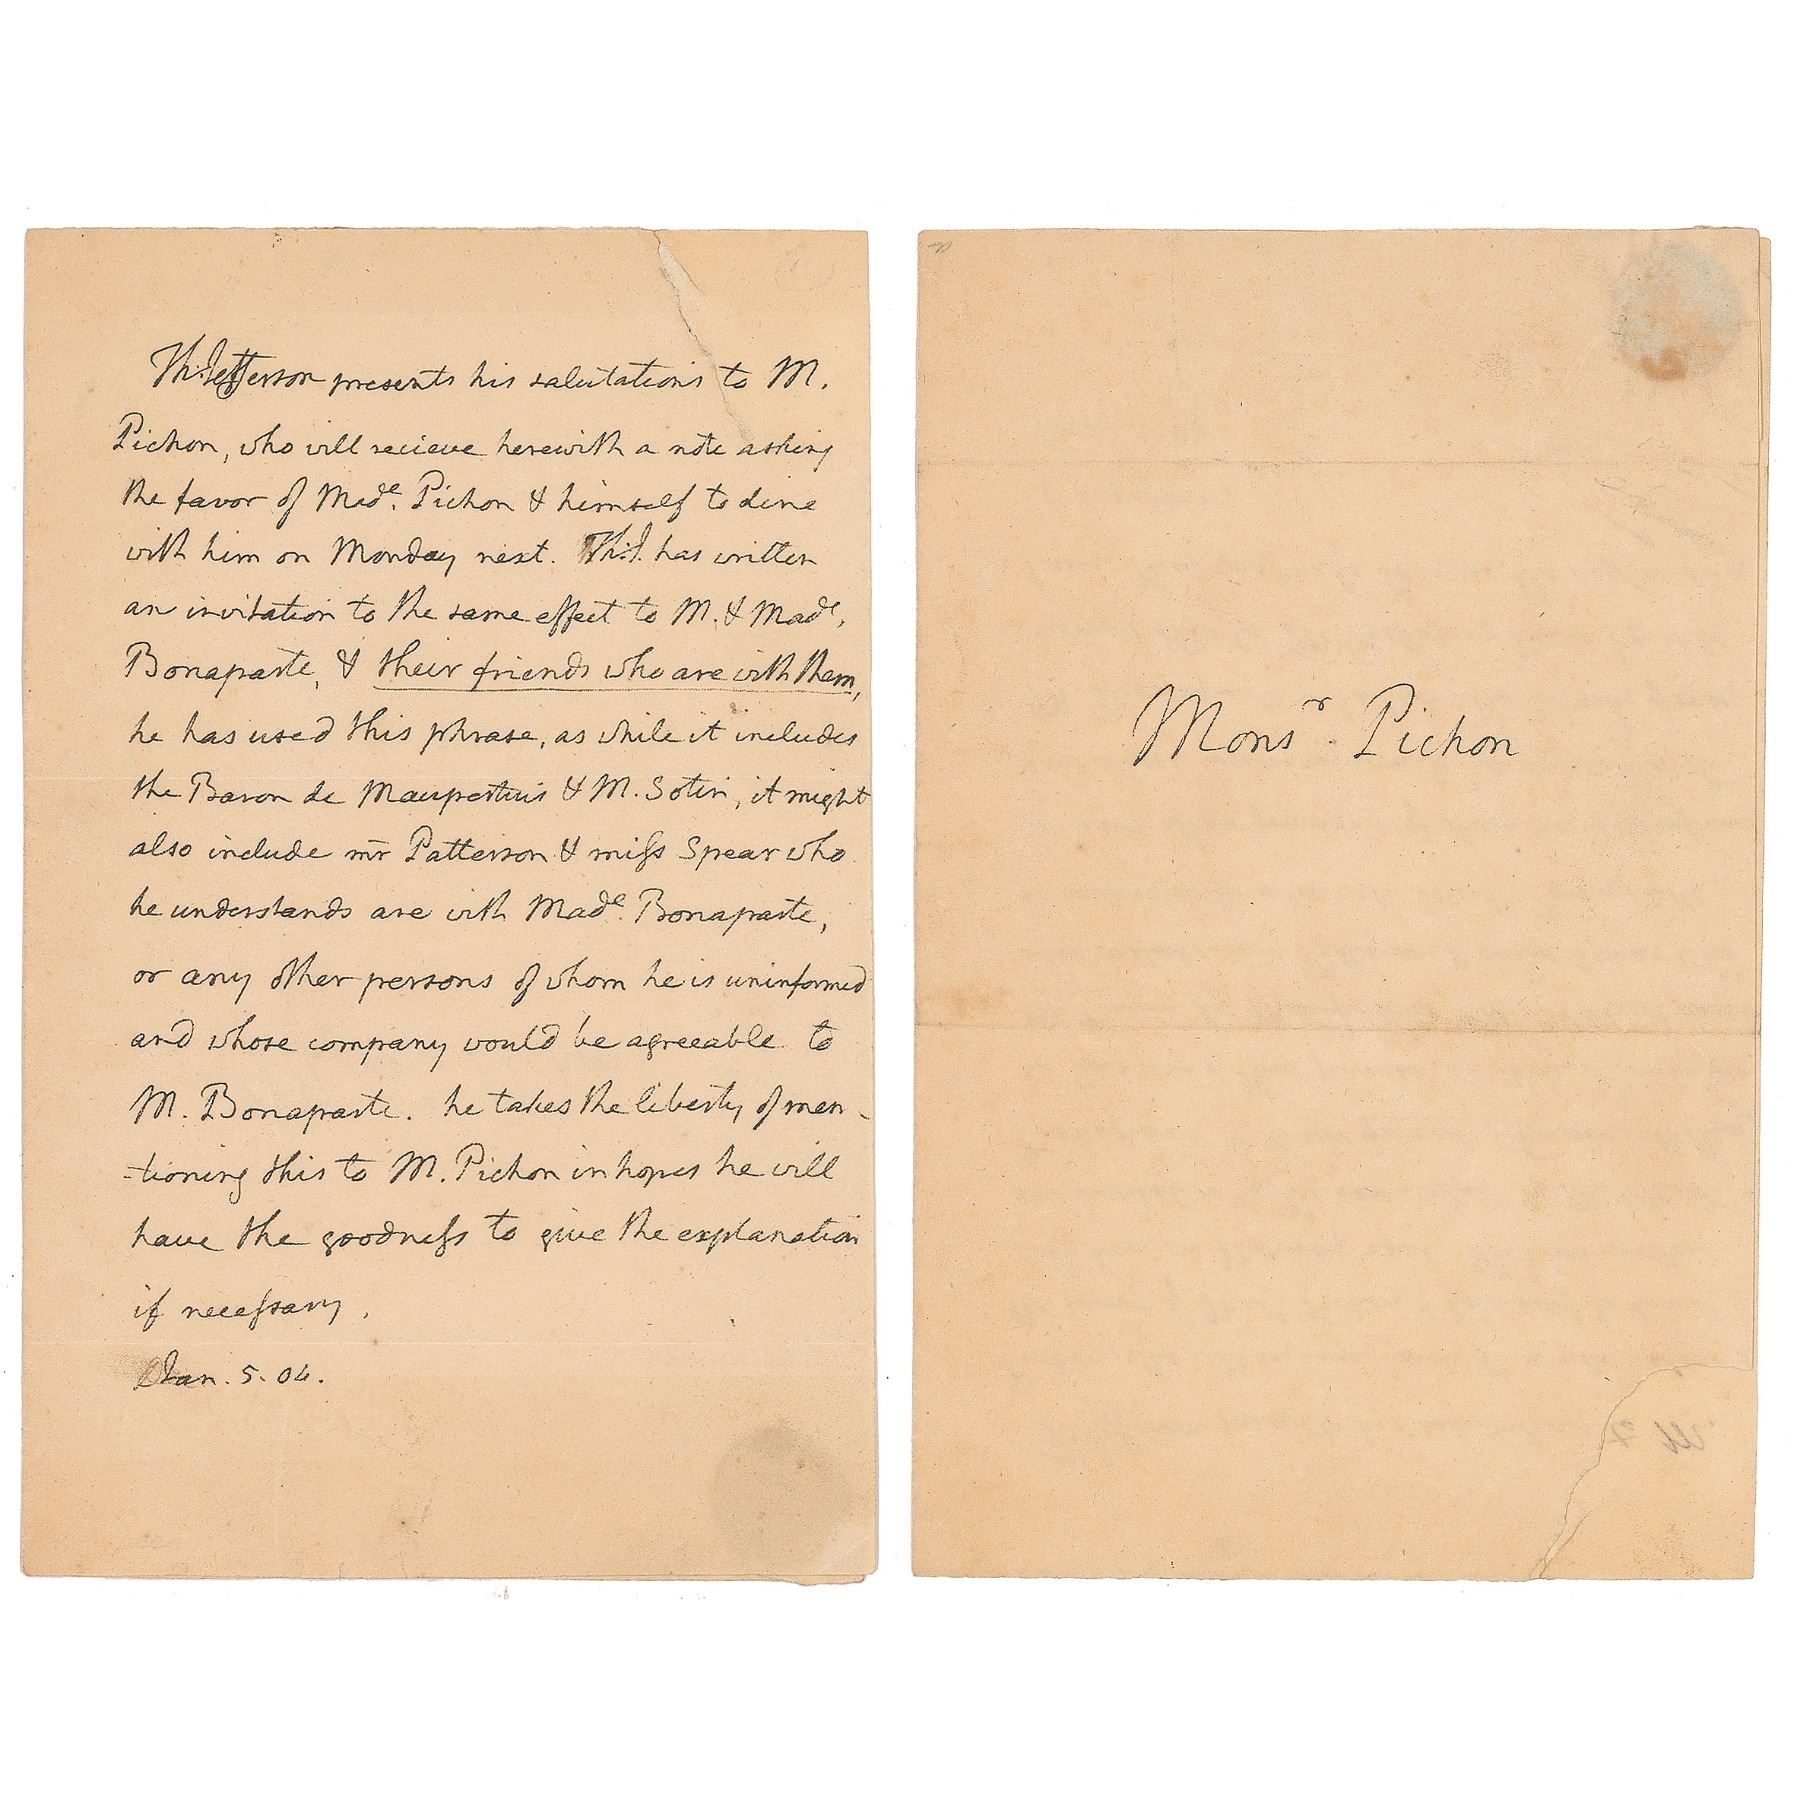 Th: Jefferson presents his salutations to M.
Pichon, who will recieve herewith a note asking
the favor of Made. Pichon & himself to dine
with him on Monday next. Th:J. has written
an invitation to the same effect to M. & Made.
Bonaparte, & their friends who are with them,
he has used this phrase, as while it includes
the Baron de Maupertuis & M. Sotin, it might
also include mr Patterson & miss Spear who
he understands are with Made. Bonaparte,
or any other persons of whom he is uninformed
and whose company would be agreeable to
M. Bonaparte. he takes the liberty of men-
-tioning this to M. Pichon in hopes he will
have the goodness to give the explanation
if necessary.
Jan. 5. 04.
Monsr. Pichon